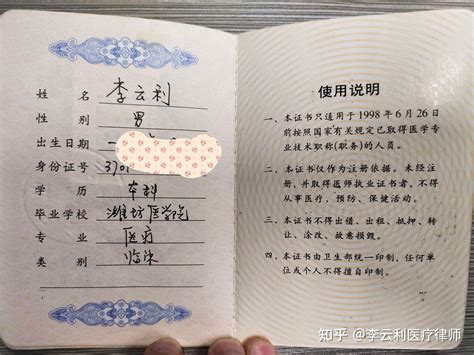 姓 名 李云利
性 别 男
出生日期 一
身份证号 370
学 历 本科
毕业学校 潍坊医学院
专 业 医疗
类 别 临床
使用说明
一、本证书只适用于1998年6月26日
前按照国家有关规定已取得医学专
业技术职称(职务)的人员。
二、本证书仅作为注册依据。未经注
册、并取得医师执业证书者，不得
从事医疗、预防、保健活动。
三、本证书不得出借、出租、抵押、转
让、涂改、故意损毁。
四、本证书由卫生部统一印制，任何单
位或个人不得擅自印制。
知乎 @李云利医疗律师